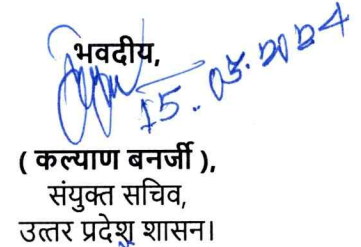 भवदीय,
15.03.2024
( कल्याण बनर्जी ),
संयुक्त सचिव,
उत्तर प्रदेश शासन।